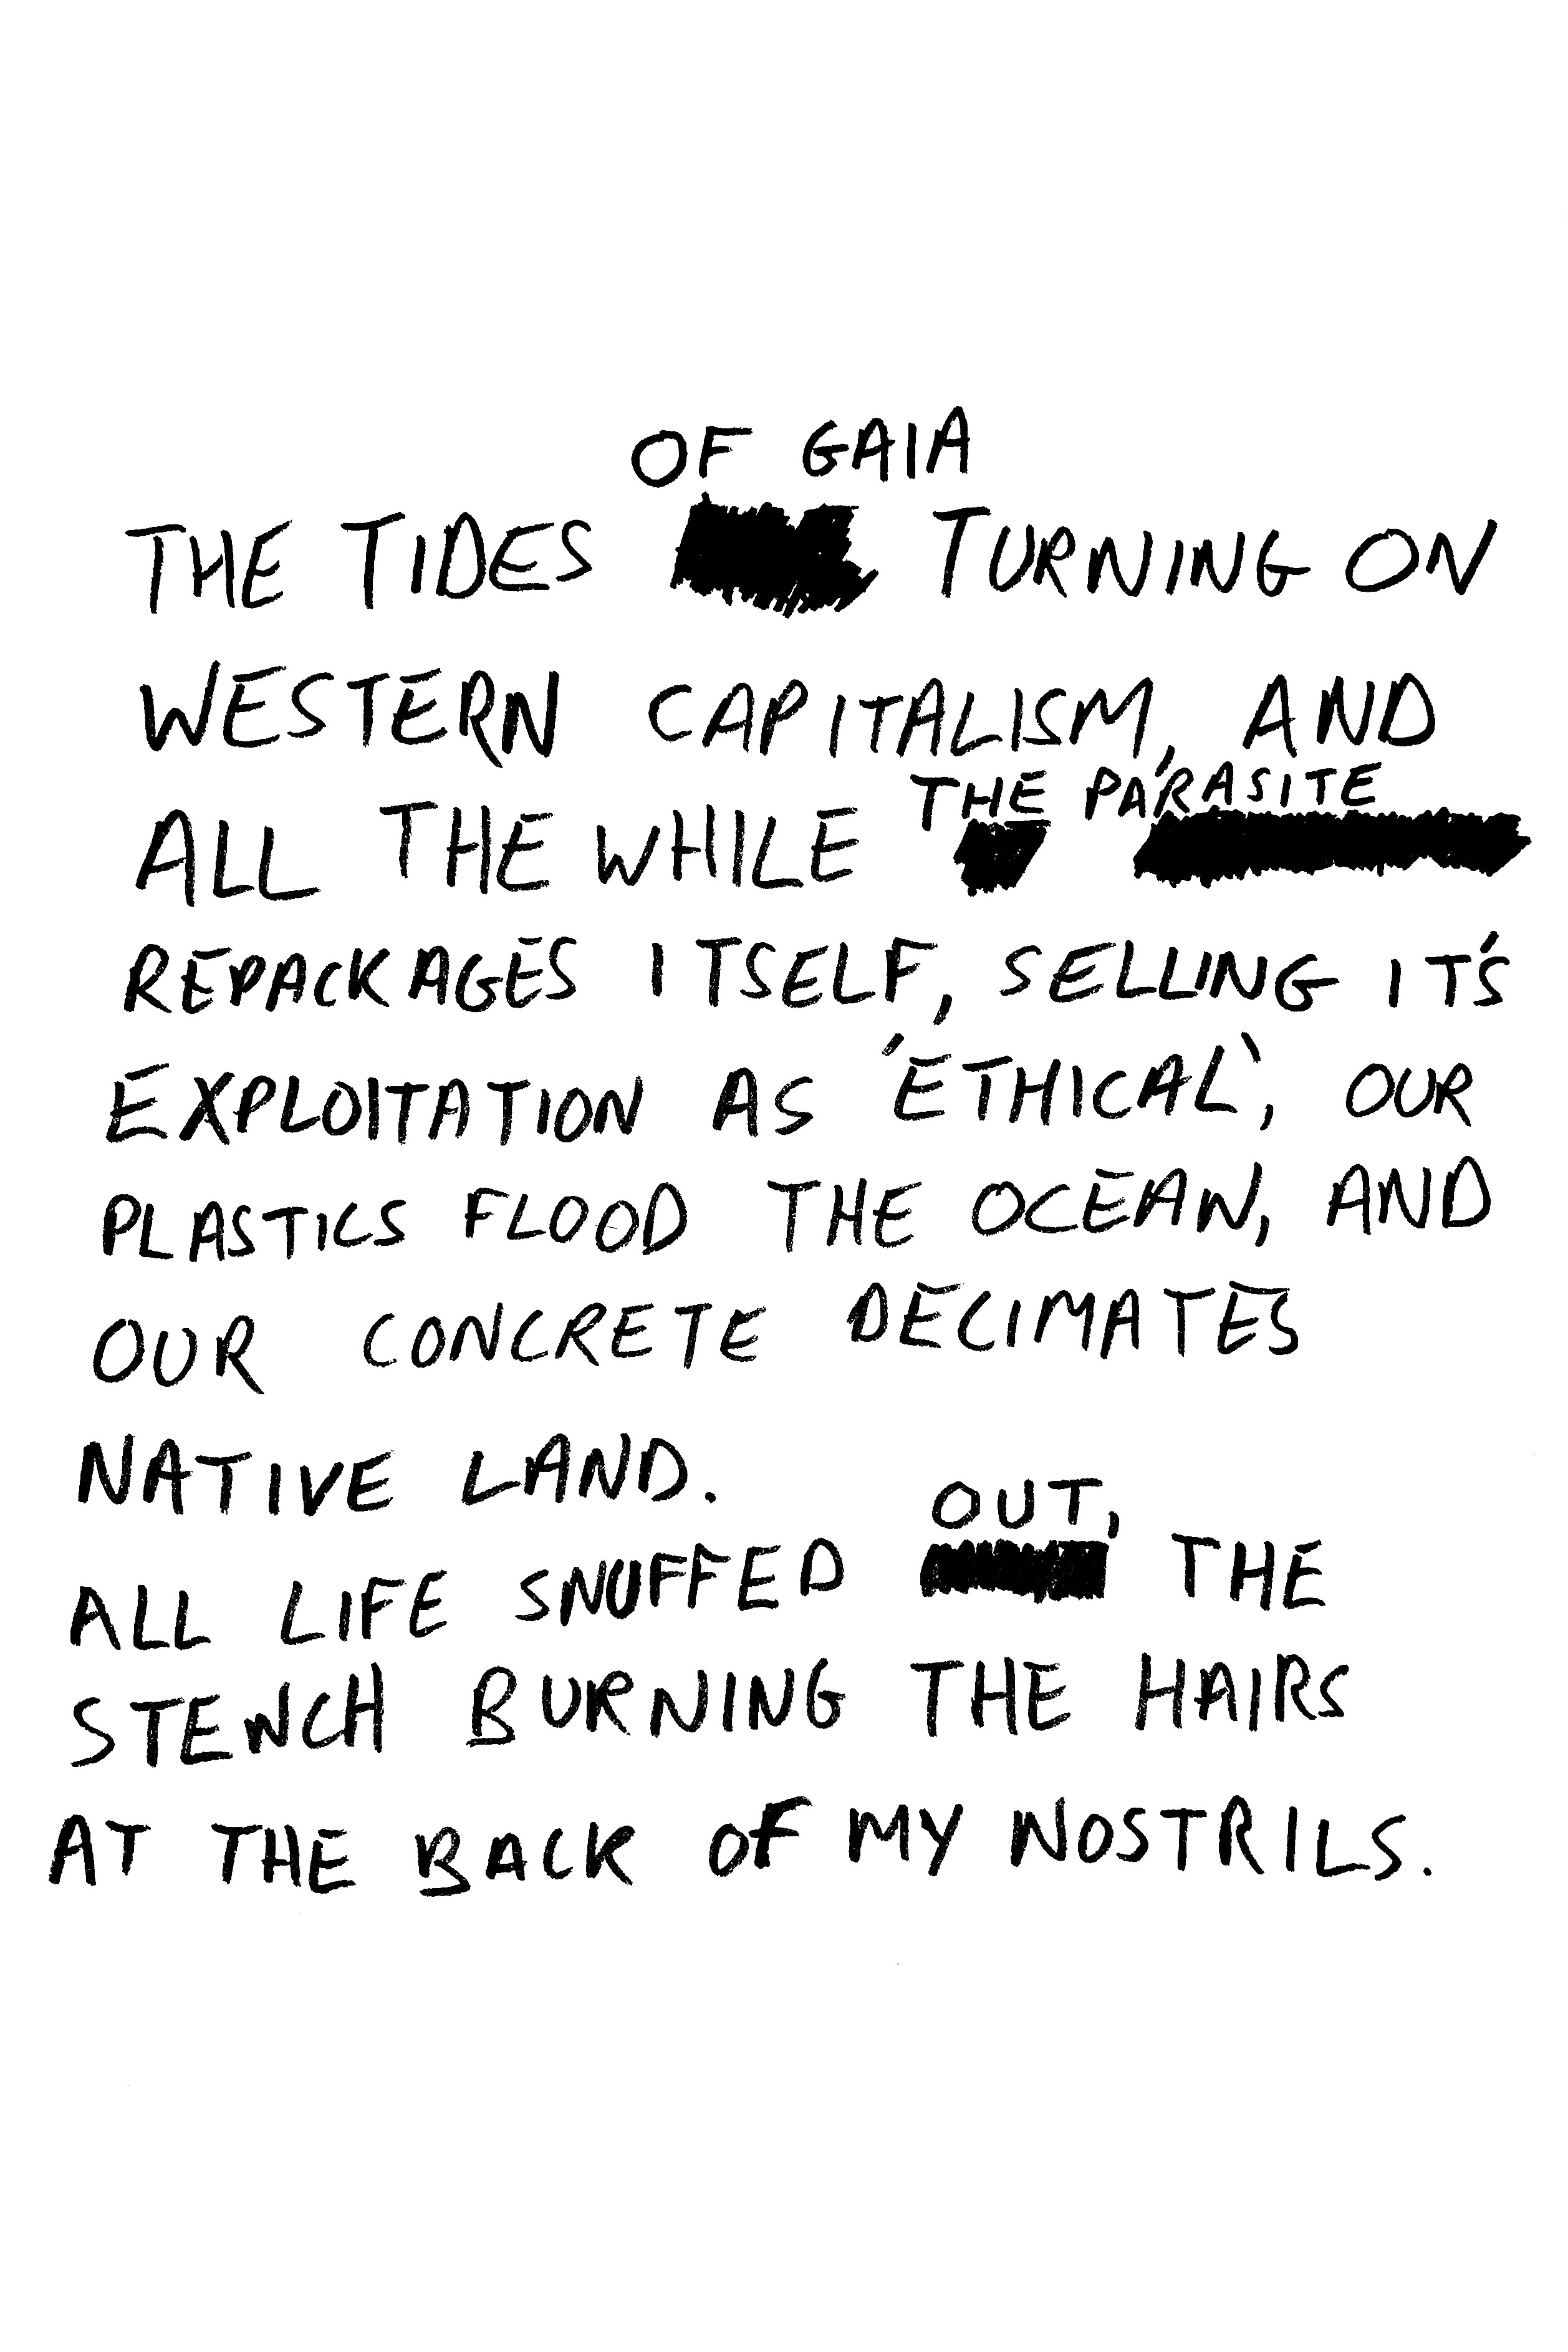 OF GAIA
THE TIDES TURNING ON
WESTERN CAPITALISM, AND
THE PARASITE
ALL THE WHILE
REPACKAGES ITSELF, SELLING IT'S
EXPLOITATION AS 'ETHICAL', OUR
PLASTICS FLOOD THE OCEAN, AND
OUR CONCRETE DECIMATES
NATIVE LAND.
OUT,
ALL LIFE SNUFFED THE
STENCH BURNING THE HAIRS
AT THE BACK OF MY NOSTRILS.